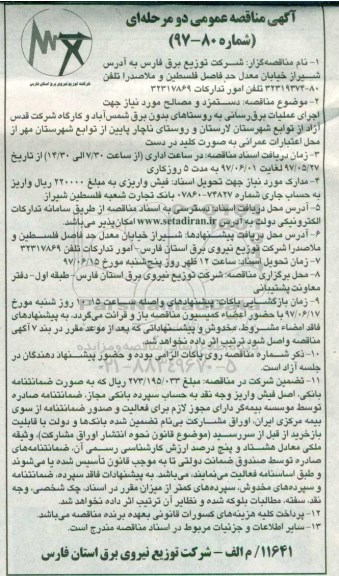 آگهی مناقصه عمومی دو مرحله‌ای
(شماره ۸۰-۹۷)
شرکت توزیع نیروی برق استان فارس
۱- نام مناقصه‌گزار: شرکت توزیع برق فارس به آدرس
شیراز خیابان معدل حد فاصل فلسطین و ملاصدرا تلفن
۸۰-۳۲۳۱۹۳۷۴ تلفن امور تدارکات ۳۲۳۱۷۸۶۹
۲- موضوع مناقصه: دستمزد و مصالح مورد نیاز جهت
اجرای عملیات برق‌رسانی به روستاهای بدون برق شمس‌آباد و کارگاه شرکت قدس
آزاد از توابع شهرستان لارستان و روستای ناچار پایین از توابع شهرستان مهر از
محل اعتبارات عمرانی به صورت کلید در دست
۳- زمان دریافت اسناد مناقصه: در ساعت اداری (از ساعت ۷/۳۰ الی ۱۴/۳۰) از تاریخ
۹۷/۰۵/۲۷ لغایت ۹۷/۰۶/۰۱ به مدت ۵ روزکاری
۴- مدارک مورد نیاز جهت تحویل اسناد: فیش واریزی به مبلغ ۲۲۰۰۰۰ ریال واریز
به حساب جاری شماره ۷۴۸۲۷-۰۷۸۶۰ بانک تجارت شعبه فلسطین شیراز
۵- آدرس محل دریافت اسناد: دسترسی به اسناد مناقصه از طریق سامانه تدارکات
الکترونیکی دولت به آدرس www.setadiran.ir امکان‌پذیر می‌باشد.
۶- آدرس محل دریافت پیشنهادها: شیراز خیابان معدل حد فاصل فلسطین و
ملاصدرا شرکت توزیع نیروی برق استان فارس- امور تدارکات تلفن ۳۲۳۱۷۸۶۹
۷- زمان تحویل اسناد: ساعت ۱۲ ظهر روز پنج‌شنبه مورخ ۹۷/۰۶/۱۵
۸- محل برگزاری مناقصه: شرکت توزیع نیروی برق استان فارس- طبقه اول- دفتر
معاونت پشتیبانی
۹- زمان بازگشایی پاکات پیشنهادهای واصله ساعت ۱۰/۱۵ روز شنبه مورخ
۹۷/۰۶/۱۷ با حضور اعضاء کمیسیون مناقصه باز و قرائت می‌گردد. به پیشنهادهای
فاقد امضاء مشروط، مخدوش و پیشنهاداتی که بعد از موعد مقرر در بند ۷ آگهی
مناقصه واصل شود ترتیب اثر داده نخواهد شد.
۱۰- ذکر شماره مناقصه روی پاکات الزامی بوده و حضور پیشنهاد دهندگان در
جلسه آزاد است.
۱۱- تضمین شرکت در مناقصه: مبلغ ۲۷۳/۱۹۵/۰۳۳ ریال که به صورت ضمانتنامه
بانکی، اصل فیش واریز وجه نقد به حساب سپرده بانکی مجاز، ضمانتنامه صادره
توسط موسسه بیمه‌گر دارای مجوز لازم برای فعالیت و صدور ضمانتنامه از سوی
بیمه مرکزی ایران، اوراق مشارکت بی‌نام تضمین شده بانک‌ها و دولت با قابلیت
بازخرید از قبل از سررسید (موضوع قانون نحوه انتشار اوراق مشارکت)، وثیقه
ملکی معادل هشتاد و پنج درصد ارزش کارشناسی رسمی آن، ضمانتنامه‌های
صادره توسط صندوق ضمانت دولتی تا به موجب قانون تأسیس شده یا می‌شوند
و طبق اساسنامه فعالیت می‌نمایند، می‌باشد. به پیشنهادات فاقد سپرده، ضمانتنامه
و سپرده‌های مخدوش، سپرده‌های کمتر از میزان مقرر در اسناد، چک شخصی، وجه
نقد، سفته، مطالبات بلوکه شده و نظایر آن ترتیب اثر داده نخواهد شد.
۱۲- پرداخت کلیه هزینه‌های کسورات قانونی بعهده برنده مناقصه می‌باشد.
۱۳- سایر اطلاعات و جزئیات مربوط در اسناد مناقصه مندرج است.
۱۱۶۴۱/م الف - شرکت توزیع نیروی برق استان فارس